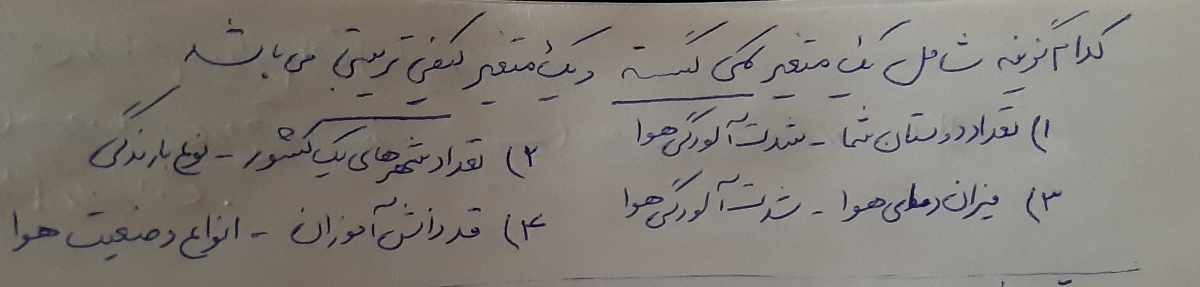 کدام گزینه شامل یک متغیر کمی گسسته و یک متغیر کیفی ترتیبی می باشد
۱) تعداد دوستان شما - شدت آلودگی هوا ۲) تعداد شهرهای یک کشور - نوع بارندگی
۳) میزان دمای هوا - شدت آلودگی هوا ۴) قد دانش آموزان - انواع وضعیت هوا